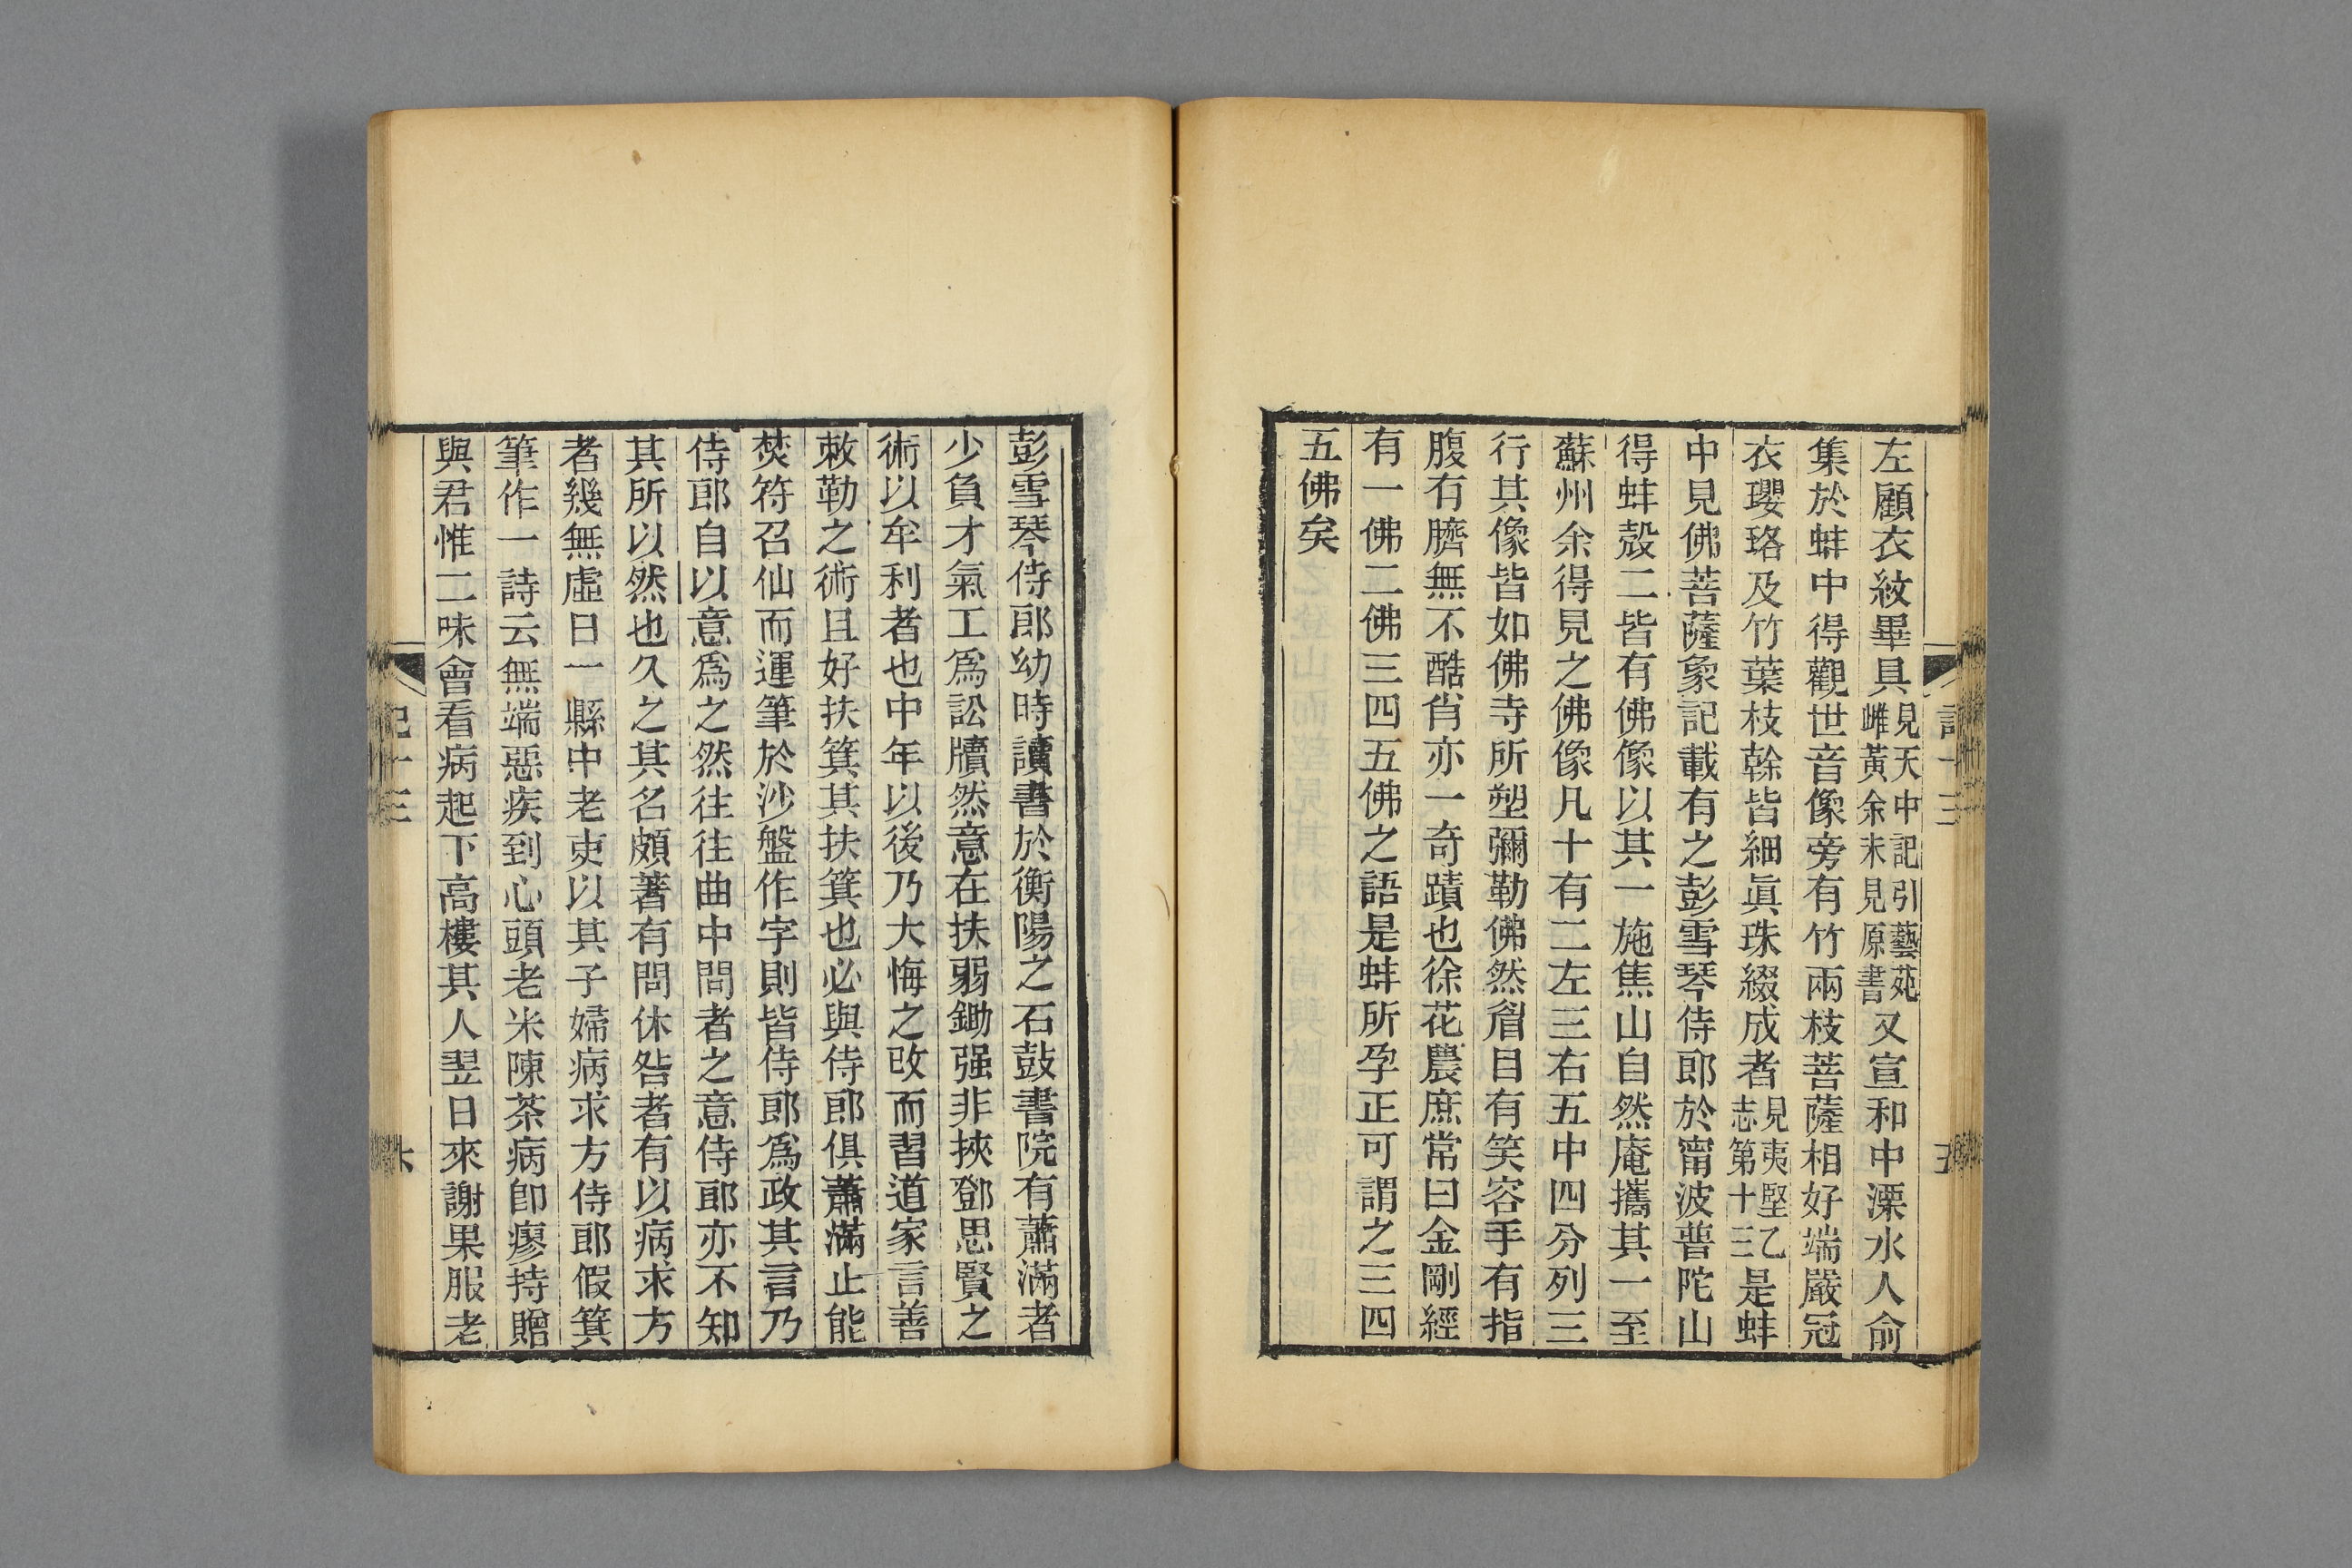 左顧衣紋畢具見天中記引藝苑雌黃余未見原書又宣和中溧水人俞
集於蚌中得觀世音像旁有竹兩枝菩薩相好端嚴冠
衣瓔珞及竹葉枝榦皆細眞珠綴成者見夷堅乙志第十三是蚌
中見佛菩薩象記載有之彭雪琴侍郎於甯波普陀山
得蚌殼二皆有佛像以其一施焦山自然庵攜其一至
蘇州余得見之佛像凡十有二左三右五中四分列三
行其像皆如佛寺所塑彌勒佛然眉目有笑容手有指
腹有臍無不酷肖亦一奇蹟也徐花農庶常曰金剛經
有一佛二佛三四五佛之語是蚌所孕正可謂之三四
五佛矣
彭雪琴侍郎幼時讀書於衡陽之石鼓書院有蕭滿者
少負才氣工爲訟牘然意在扶弱鋤强非挾鄧思賢之
術以牟利者也中年以後乃大悔之改而習道家言善
敕勒之術且好扶箕其扶箕也必與侍郎俱蕭滿止能
焚符召仙而運筆於沙盤作字則皆侍郎爲政其言乃
侍郎自以意爲之然往往曲中問者之意侍郎亦不知
其所以然也久之其名頗著有問休咎者有以病求方
者幾無虛日一縣中老吏以其子婦病求方侍郎假箕
筆作一詩云無端惡疾到心頭老米陳茶病卽瘳持贈
與君惟二味會看病起下高樓其人翌日來謝果服老
記十三
六